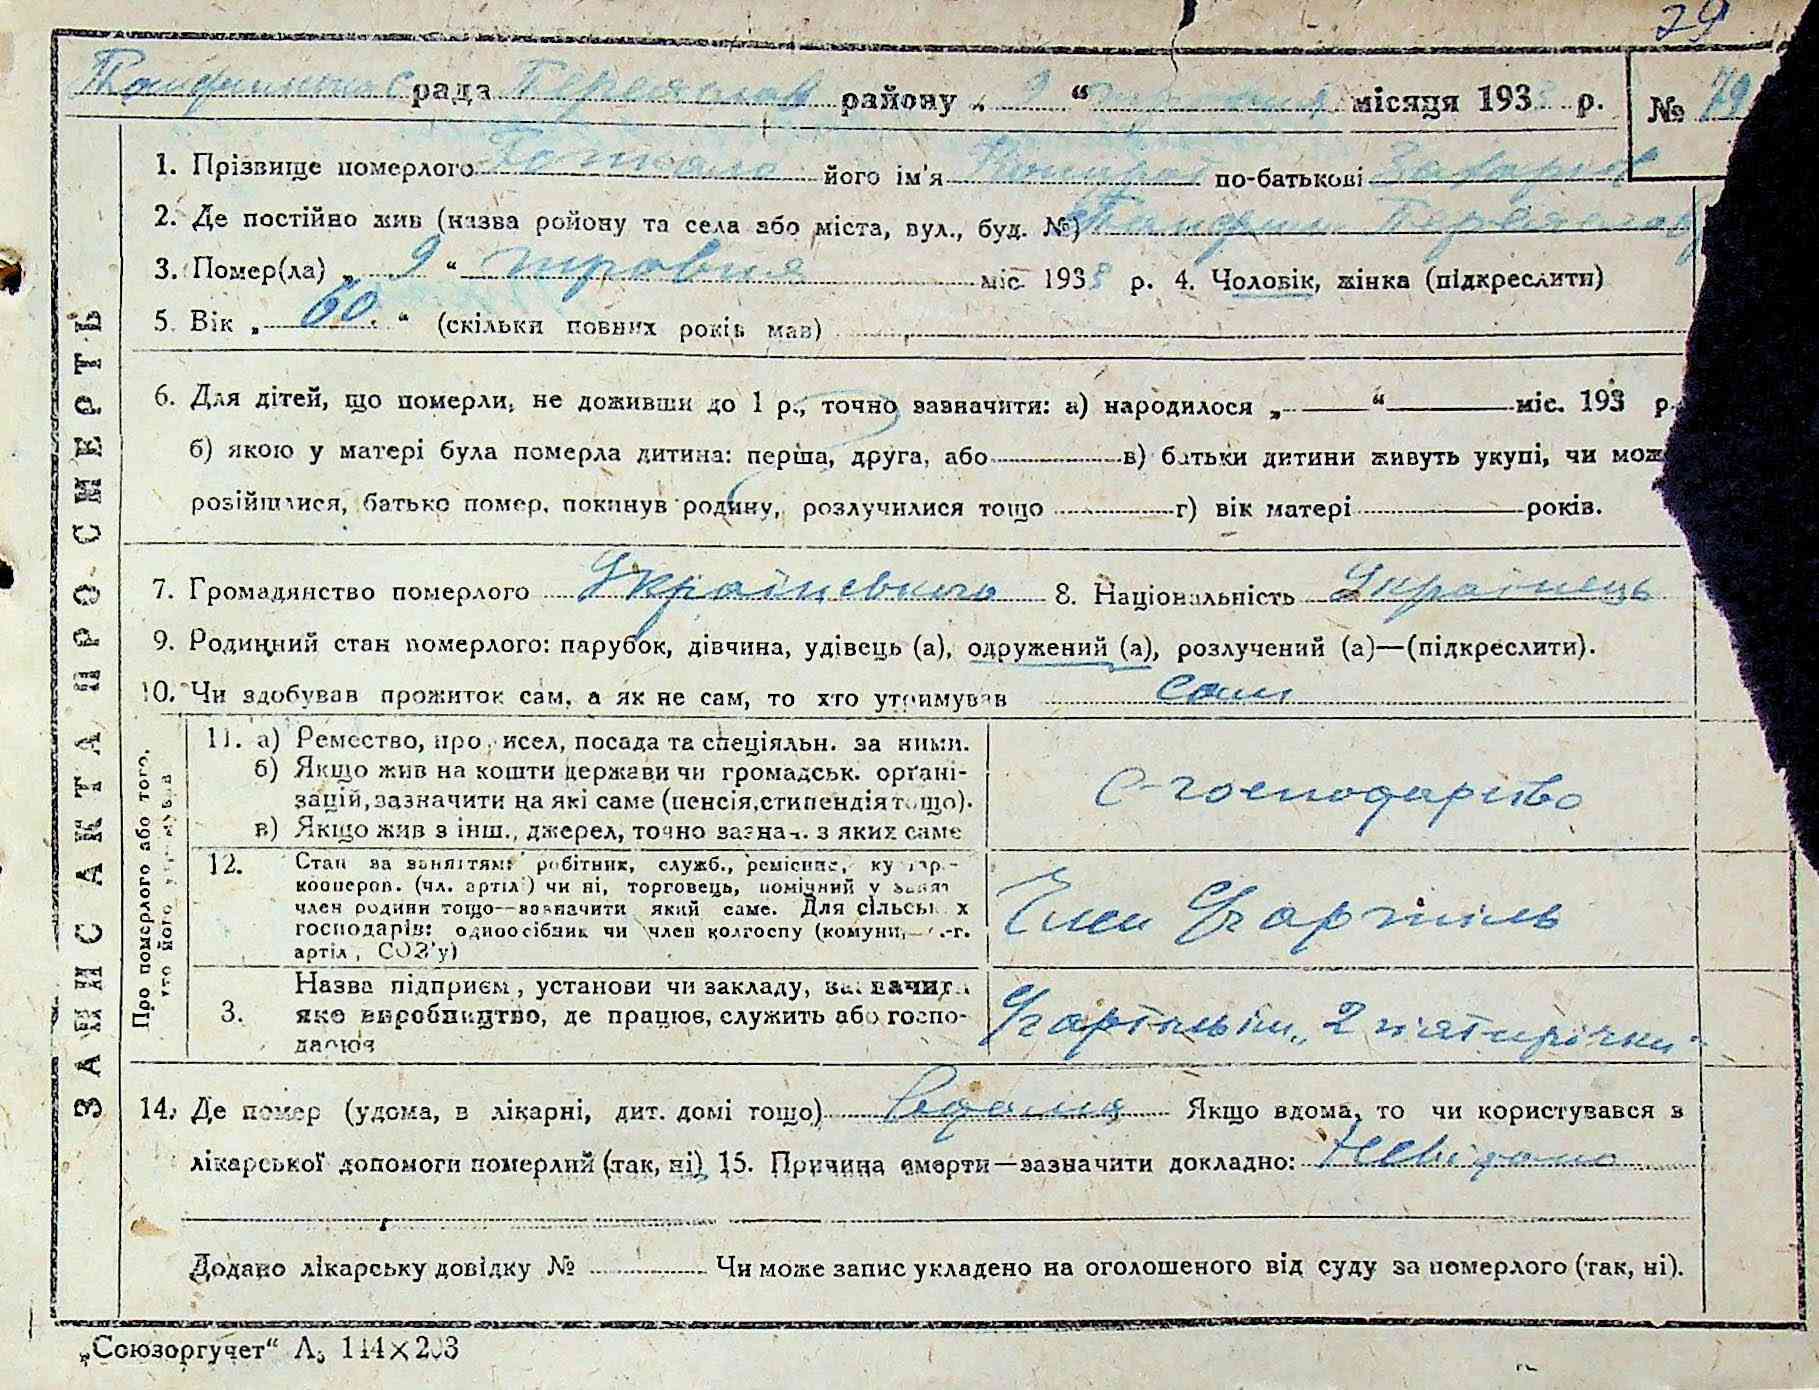 29
рада Переяслав району „ 9 “ травня місяця 1933 р. № 79
1. Прізвище померлого його ім'я по-батькові Захаров
2. Де постійно жив (назва ройону та села або міста, вул., буд. №) Переяслав
3. Помер(ла) „ 9 “ травня міс. 1933 р. 4. Чоловік, жінка (підкреслити)
5. Вік „ 60. “ (скільки повних років мав)
6. Для дітей, що померли, не доживши до 1 р., точно зазначити: а) народилося „ “ міс. 193 р.
б) якою у матері була померла дитина: перша, друга, або в) батьки дитини живуть укупі, чи мож
розійшлися, батько помер, покинув родину, розлучилися тощо г) вік матері років.
7. Громадянство померлого Українського 8. Національність Українець
9. Родинний стан померлого: парубок, дівчина, удівець (а), одружений (а), розлучений (а)—(підкреслити).
10. Чи здобував прожиток сам, а як не сам, то хто утримував сам
ЗАПИС АКТА ПРО СМЕРТЬ
Про померлого або того, хто його утримував
11. а) Ремество, про исел, посада та спеціяльн. за ними.
б) Якщо жив на кошти держави чи громадськ. органі-
зацій, зазначити на які саме (пенсія, стипендія тощо).
в) Якщо жив з інш., джерел, точно зазнач. з яких саме
С-господарство
12. Стан за заняттям: робітник, служб., ремісник, кустар.-
кооперов. (чл. артілі) чи ні, торговець, помічний у занят
член родини тощо—зазначити який саме. Для сільськ х
господарів: одноосібник чи член колгоспу (комуни, с.-г.
артіл, СОЗ'у)
Член С/г артіль
3. Назва підприєм, установи чи закладу, зазначити
яке виробництво, де працює, служить або госпо-
дарює
С/г артільти „2 п'ятирічки“
14. Де помер (удома, в лікарні, дит. домі тощо) Вдома Якщо вдома, то чи користувався в
лікарської допомоги померлий (так, ні) 15. Причина смерти—зазначити докладно: Невідомо
Додано лікарську довідку № Чи може запис укладено на оголошеного від суду за померлого (так, ні).
„Союзоргучет“ Л, 144×203